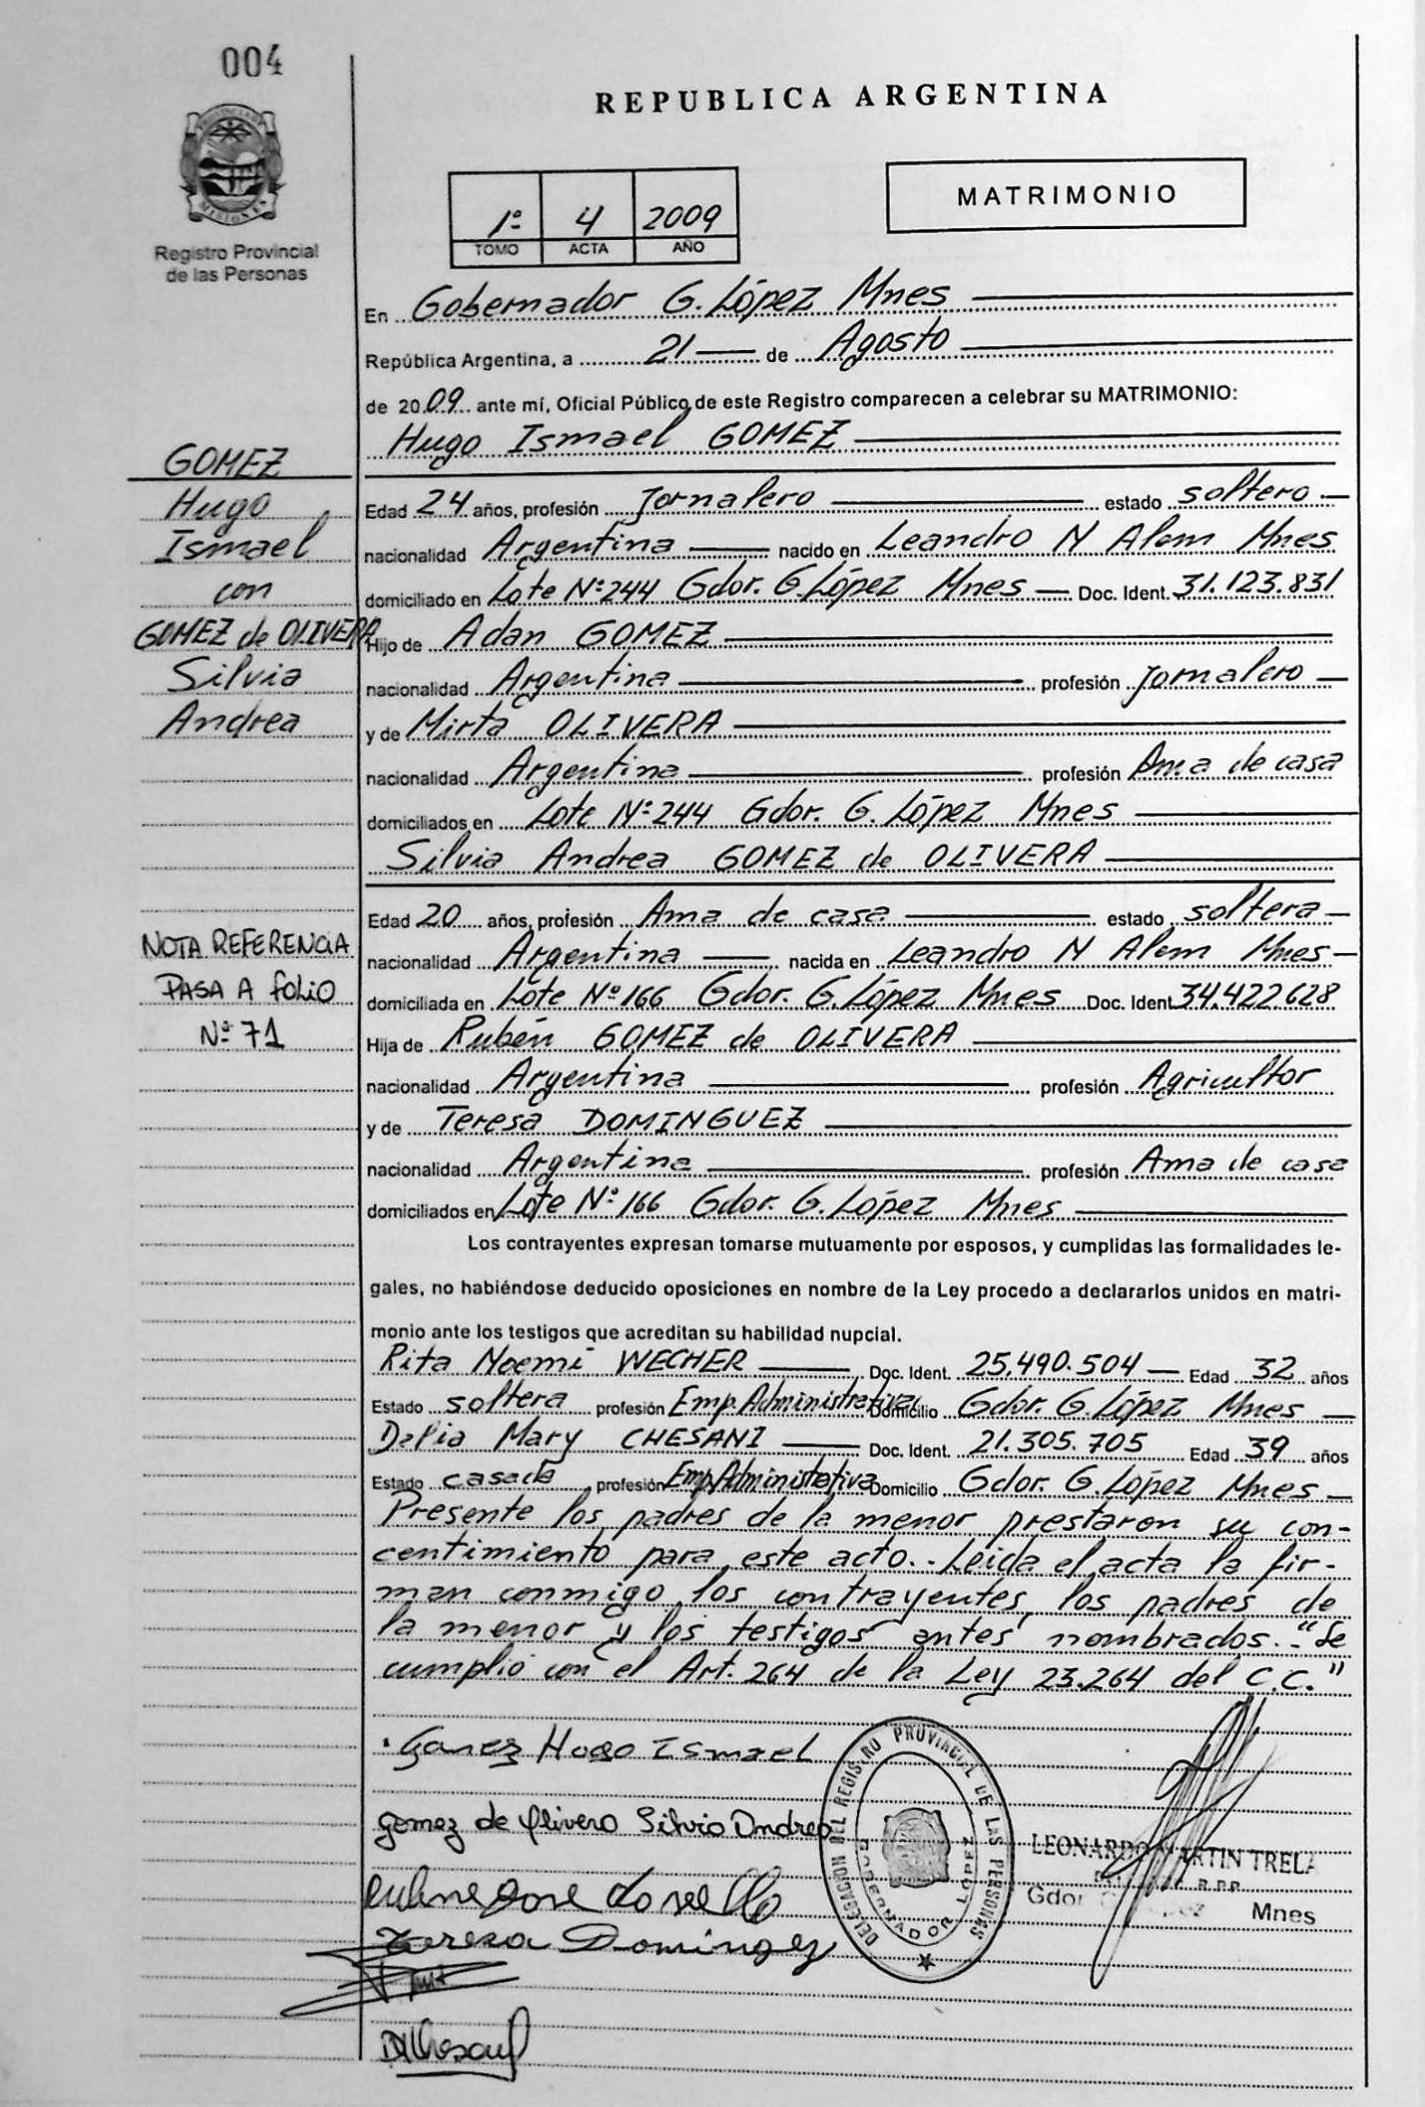 004
REPUBLICA ARGENTINA
MISIONES
Registro Provincial
de las Personas
1º 4 2009
TOMO ACTA AÑO
MATRIMONIO
En Gobernador G. López Mnes
República Argentina, a 21 de Agosto
de 2009 ante mí, Oficial Público de este Registro comparecen a celebrar su MATRIMONIO:
Hugo Ismael GOMEZ
GOMEZ
Hugo
Ismael
con
GOMEZ de OLIVERA
Silvia
Andrea
Edad 24 años, profesión Jornalero estado soltero
nacionalidad Argentina nacido en Leandro N Alem Mnes
domiciliado en Lote Nº 244 Gdor. G. López Mnes Doc. Ident. 31.123.831
Hijo de Adan GOMEZ
nacionalidad Argentina profesión Jornalero
y de Mirta OLIVERA
nacionalidad Argentina profesión Ama de casa
domiciliados en Lote Nº 244 Gdor. G. López Mnes
Silvia Andrea GOMEZ de OLIVERA
NOTA REFERENCIA
PASA A FOLIO
Nº 71
Edad 20 años, profesión Ama de casa estado soltera
nacionalidad Argentina nacida en Leandro N Alem Mnes
domiciliada en Lote Nº 166 Gdor. G. López Mnes Doc. Ident 34.422628
Hija de Rubén GOMEZ de OLIVERA
nacionalidad Argentina profesión Agricultor
y de Teresa DOMINGUEZ
nacionalidad Argentina profesión Ama de casa
domiciliados en Lote Nº 166 Gdor. G. López Mnes
Los contrayentes expresan tomarse mutuamente por esposos, y cumplidas las formalidades le-
gales, no habiéndose deducido oposiciones en nombre de la Ley procedo a declararlos unidos en matri-
monio ante los testigos que acreditan su habilidad nupcial.
Rita Noemí WECHER Doc. Ident. 25.490.504 Edad 32 años
Estado soltera profesión Emp. Administrativa Domicilio Gdor. G. López Mnes
Delia Mary CHESANI Doc. Ident. 21.305.705 Edad 39 años
Estado casada profesión Emp Administrativa Domicilio Gdor. G. López Mnes
Presente los padres de la menor prestaron su con-
centimiento para este acto.- Leida el acta la fir-
man conmigo los contrayentes, los padres de
la menor y los testigos antes nombrados.- "Se
cumplió con el Art. 264 de la Ley 23.264 del C.C."
Gomez Hugo Ismael
Gomez de Olivera Silvia Andrea
Teresa Dominguez
DELEGACION DEL REGISTRO PROVINCIAL DE LAS PERSONAS
GOBERNADOR LOPEZ
LEONARDO MARTIN TRELA
R.P.P.
Gdor Mnes